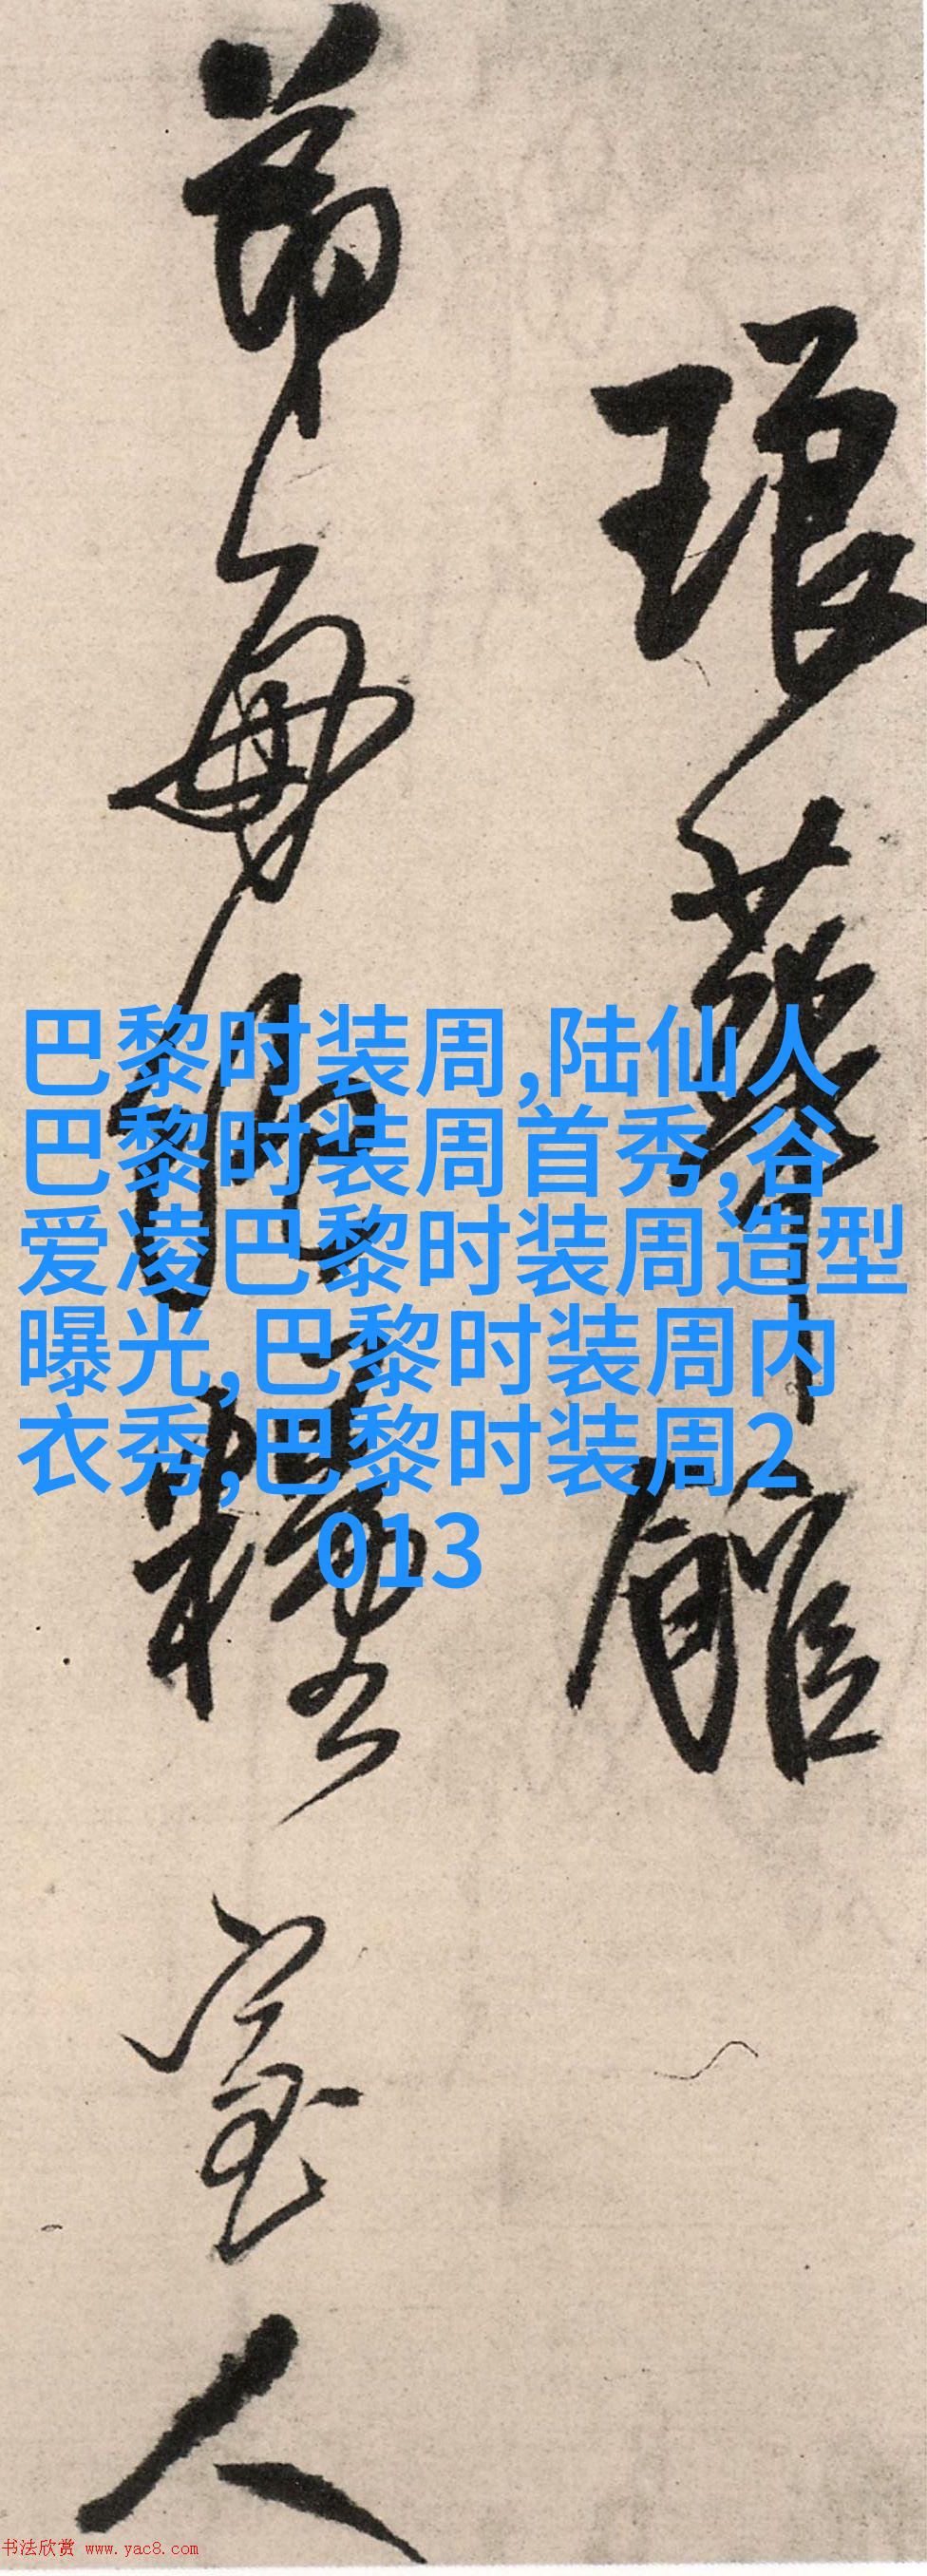 琅華館
巴黎时装周,陆仙人
巴黎时装周首秀,谷
爱凌巴黎时装周造型
曝光,巴黎时装周内
衣秀,巴黎时装周2
013
人
书法欣赏 www.yac8.com